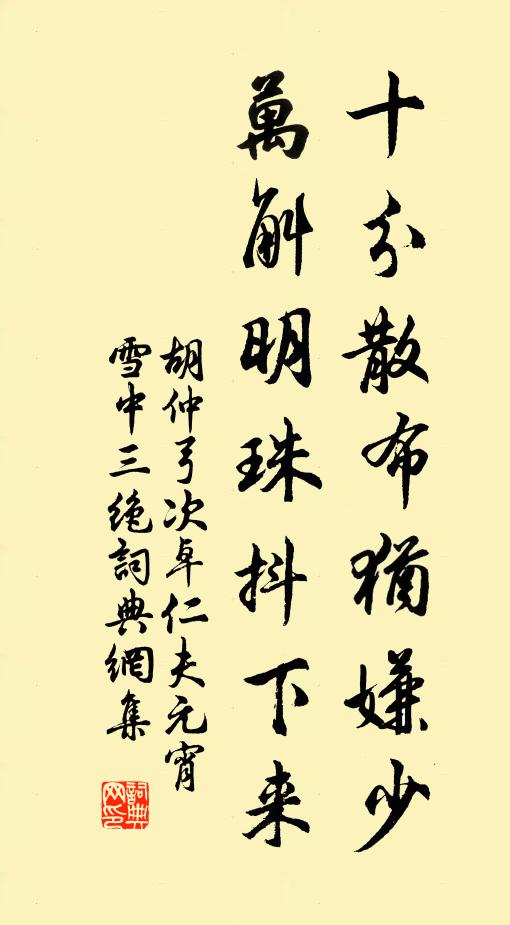 十分散布猶嫌少
萬斛明珠抖下来
胡仲弓次卓仁夫元宵
雪中三絶詞典網集
詞典网印